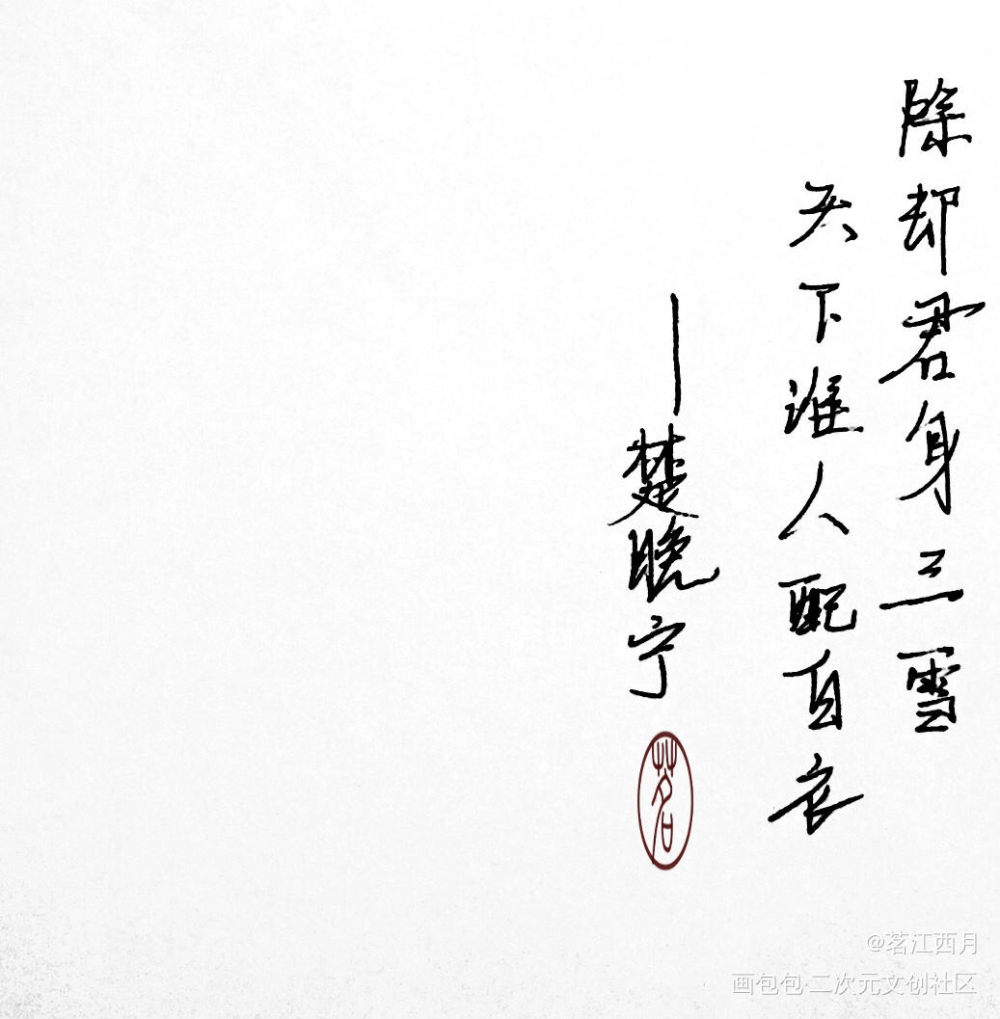 除却君身三雪
天下谁人配白衣
—楚晚宁
茗
@茗江西月
画包包·二次元文创社区